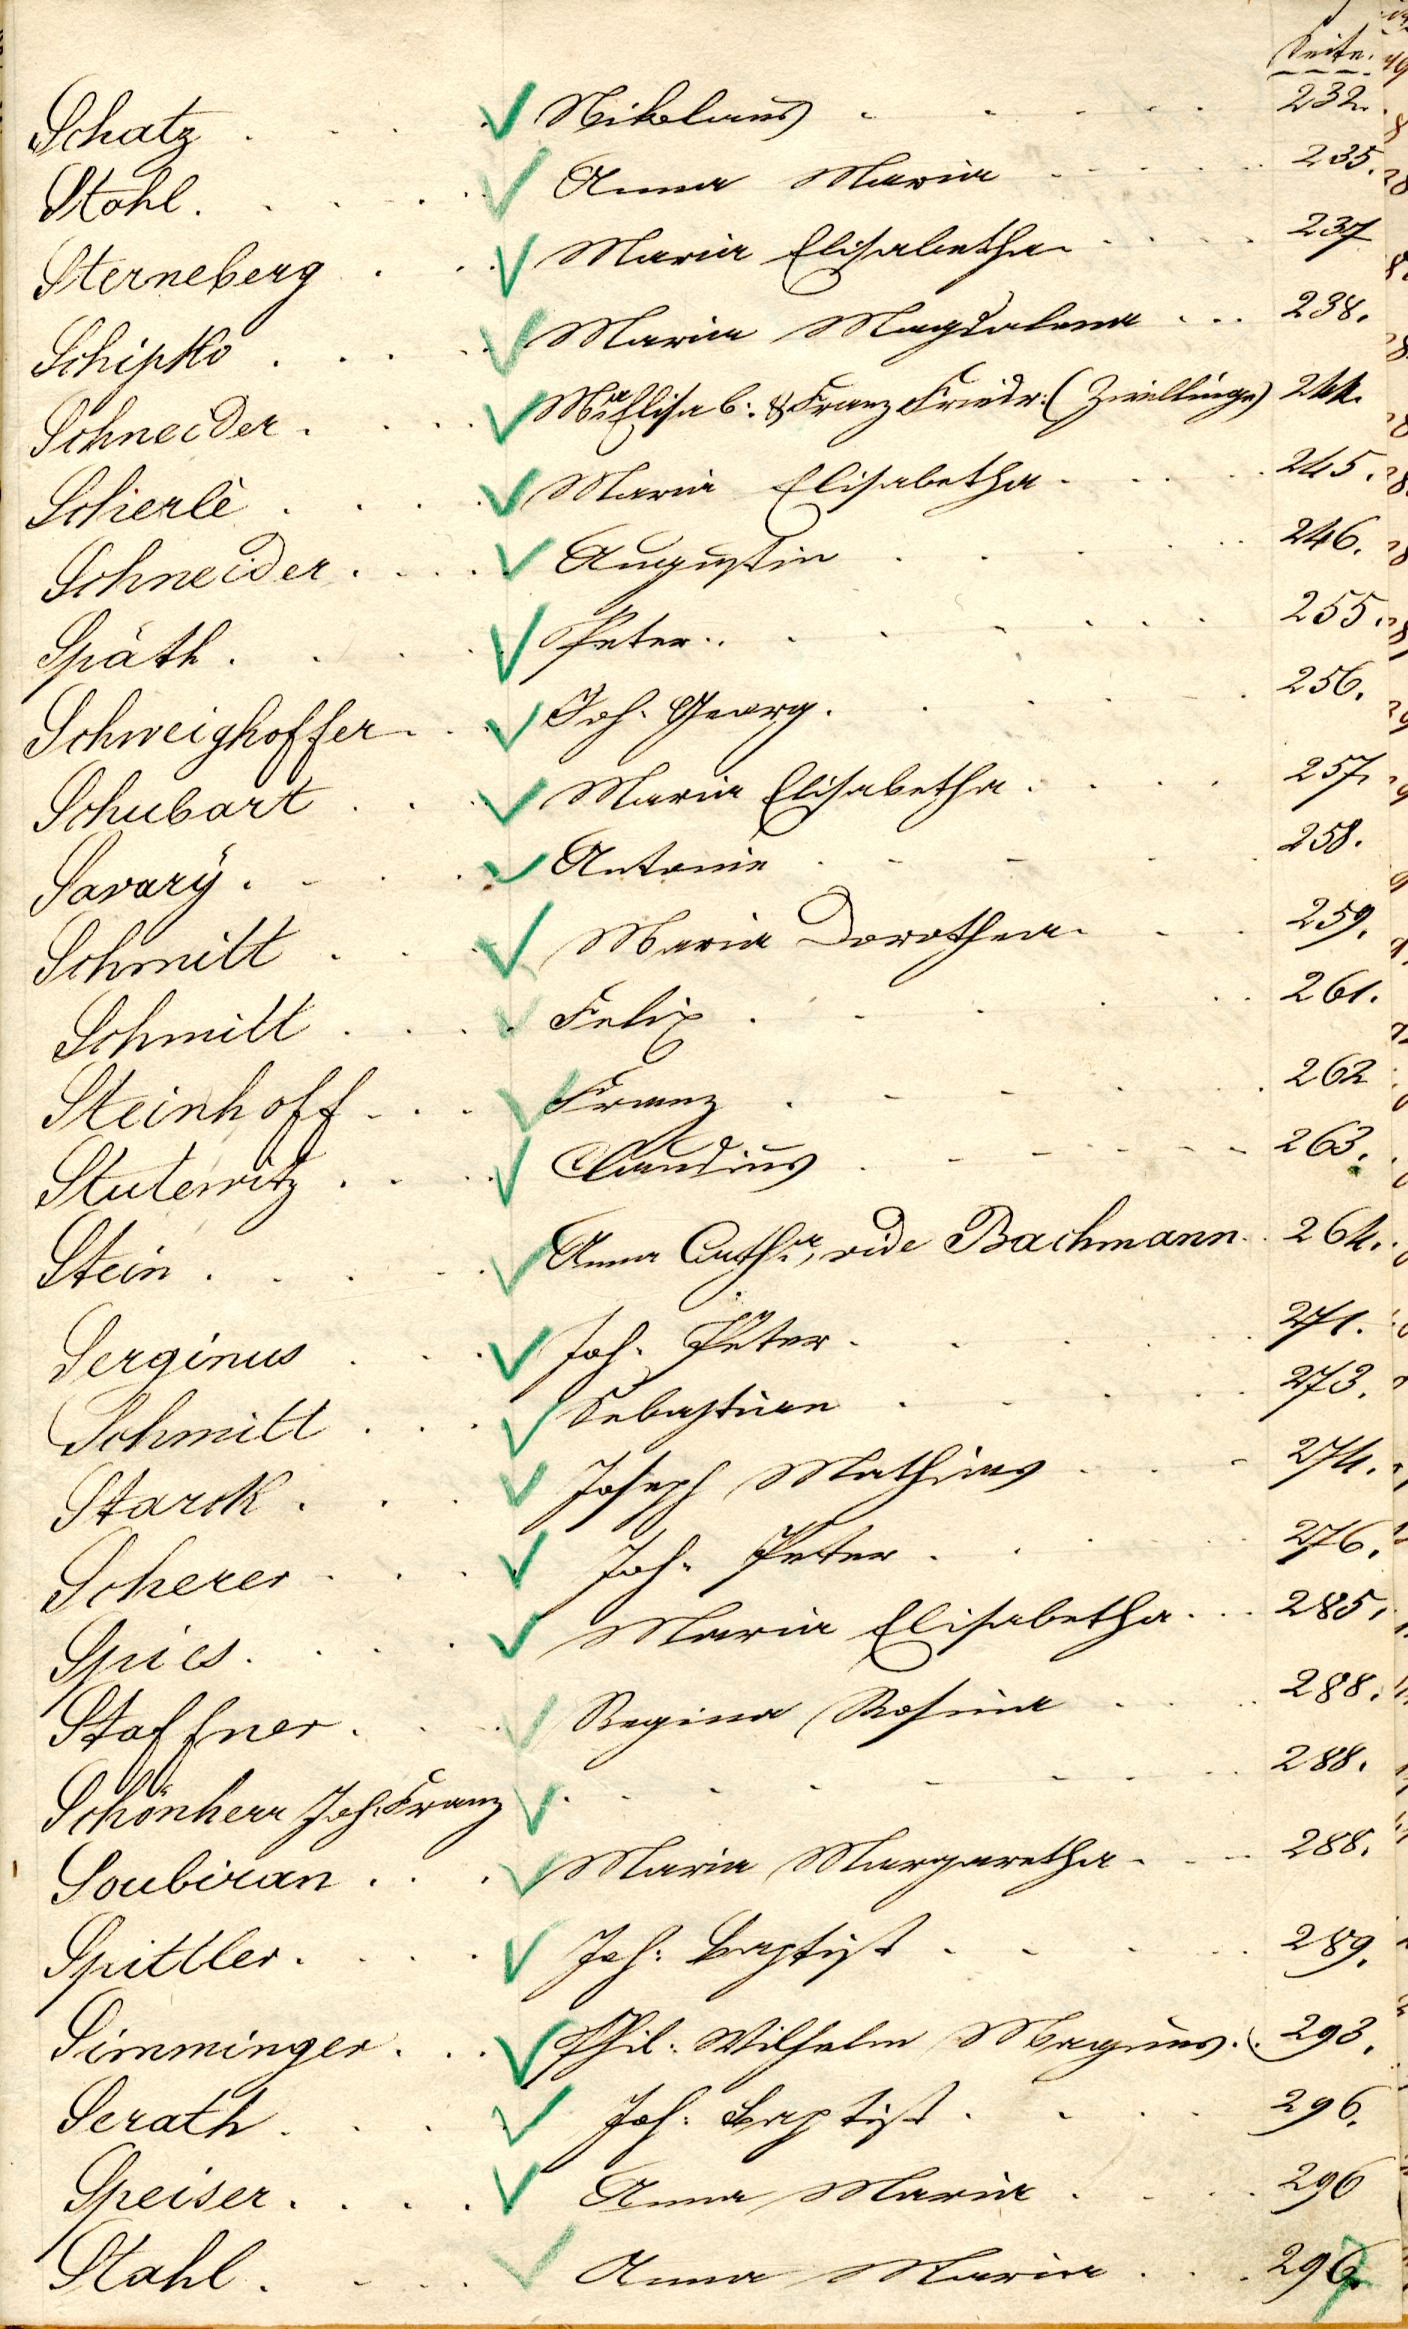 Seite.
Schatz . . . Nikolaus . . . . . 232.
Stahl . . . . Anna Maria . . . . . 235.
Sterneberg . . . Maria Elisabetha . . . . 237
Schipko . . . . Maria Magdalena . . . 238.
Schneider . . . . Mria Elisab: & Franz Friedr: (Zwillinge) 244.
Schierlè . . . . Maria Elisabetha . . . . 245.
Schneider . . . . Augustin . . . . . 246.
Späth . . . . Peter . . . . . . 255.
Schweighoffer . . Joh. Georg . . . . 256.
Schubart . . . Maria Elisabetha . . . . 257.
Savarÿ . . . . Antonie . . . . . 258.
Schmitt . . . Maria Dorothea . . . 259.
Schmitt . . . . Felix . . . . . 261.
Steinhoff . . . Franz . . . . . 262
Stutewitz . . . Claudius . . . . . 263.
Stein . . . . . Anna Cathna, vide Bachmann . 264.
Serginus . . . Joh. Peter . . . . . 271.
Schmitt . . . . Sebastian . . . . . 273.
Starck . . . Joseph Mathias . . . 274.
Scherer . . . . Joh. Peter . . . . 276.
Spies . . . . Maria Elisabetha . . . 285.
Staffner . . . Regina Rosina . . . 288.
Schönherr Joh. Franz . . . . . . . 288.
Soubiran . . . Maria Margaretha . . . 288.
Spittler . . . . Joh: Baptist . . . . . 289.
Simminger . . . Phil. Wilhelm Magnus . . 293.
Serath . . . . Joh: Baptist . . . . 296.
Speiser . . . . Anna Maria . . . . 296
Stahl . . . . Anna Maria . . . 297